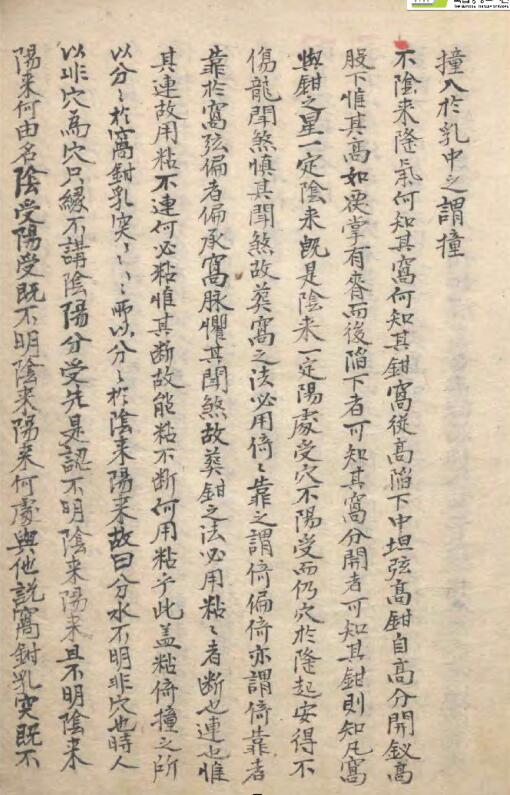 撞入於乳中之謂撞
不陰来隆氣何知其窩何知其鉗窩從高陷下中坦弦高鉗自高分開釵高
股下惟其高如覆掌有脊而後陷下者可知其窩分開者可知其鉗則知凡窩
與鉗之星一定陰来既是陰来一定陽處受穴不陽受而仍穴於隆起安得不
傷龍聞煞慎其聞煞故葬窩之法必用倚〻靠之謂倚偏倚亦謂倚靠者
靠於窩弦偏者偏承窩脉懼其聞煞故葬鉗之法必用粘〻者断也連也惟
其連故用粘不連何必粘惟其断故能粘不断何用粘乎此盖粘倚撞之所
以分〻於窩鉗乳突〻〻〻〻所以分〻於陰来陽来故曰分水不明非穴也時人
以非穴為穴只緣不講陰陽分受先是認不明陰来陽来且不明陰来
陽来何由名陰受陽受既不明陰来陽来何處與他説窩鉗乳突既不